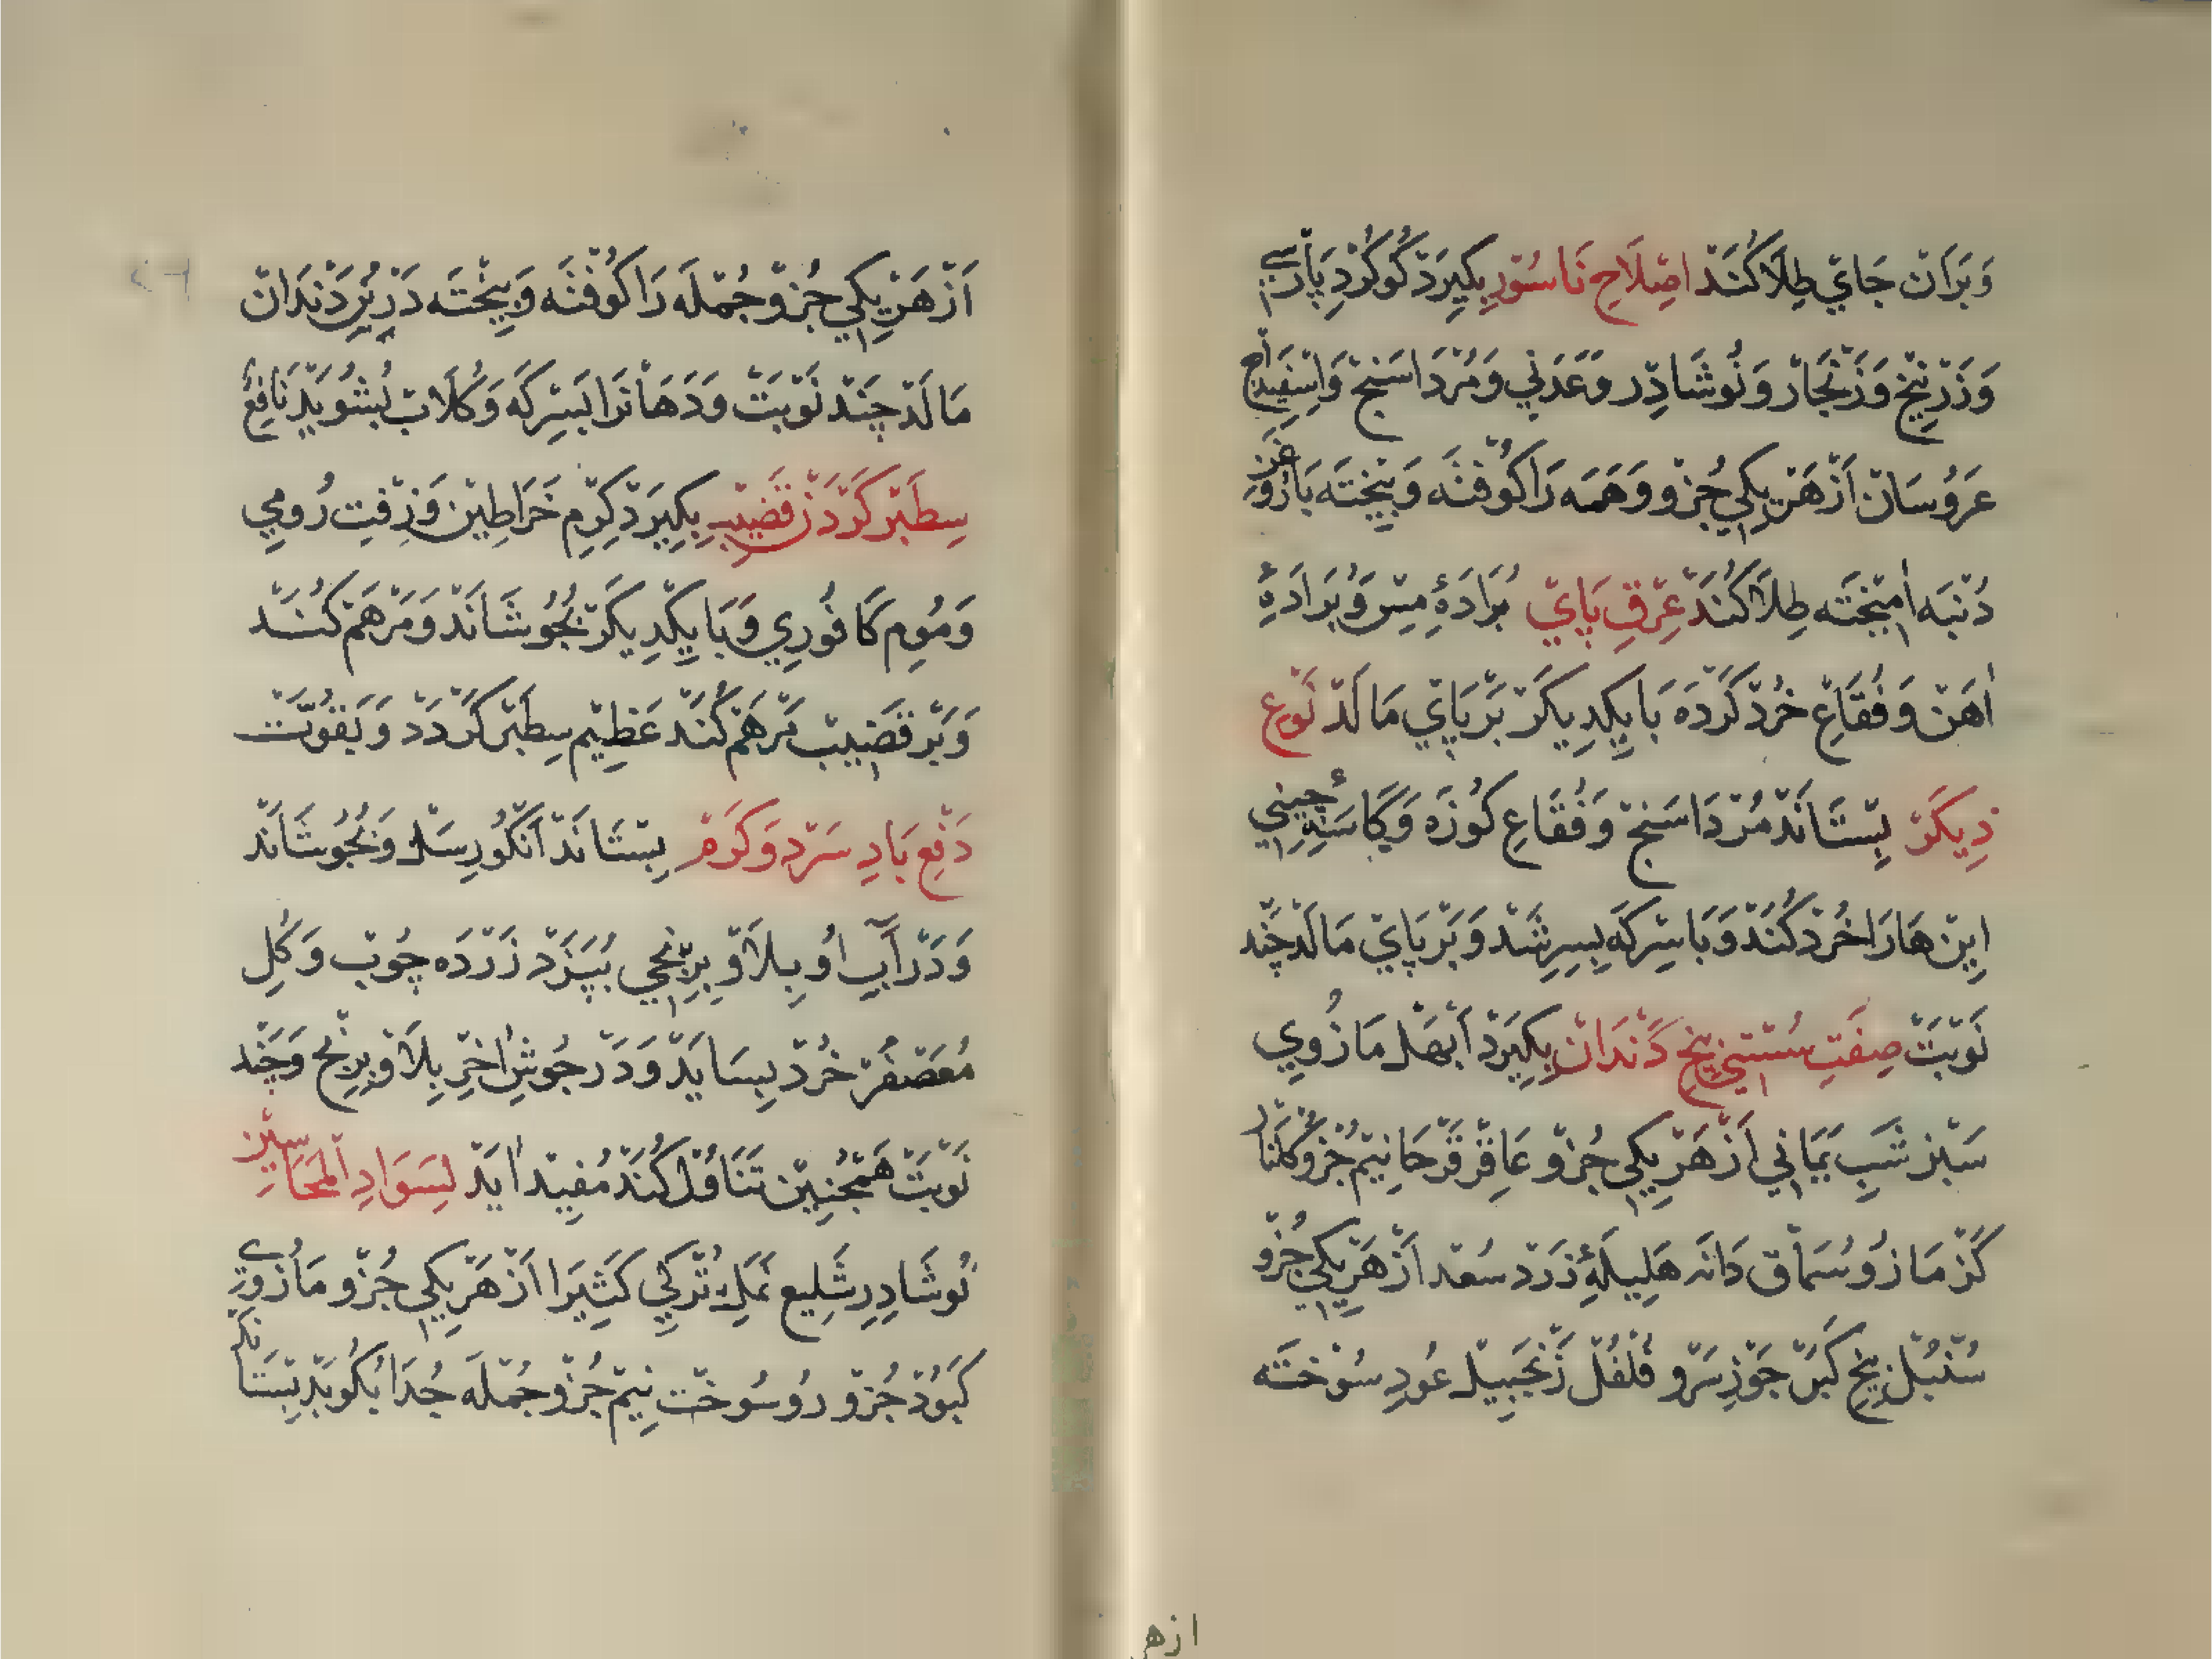 وَبَرَانْ جَايْ طِلَا كُنَدْ اِصْلَاحِ نَاسُوْرِ بِكِيرَدْ كُوكُرْدِ پَارْسِي
وَزَرْنِيْخْ وَزَنْجَارْ وَنُوشَادِرْ وَعَدَنِي وَمُرْدَاسَنْجْ وَاِسْفِيْدَاجْ
عَرُوْسَانْ اَزْ هَرْ يِكِي جُزْو وَهَمَه رَا كُوْفْتَه وَبِيْخْتَه بَا رَوْغَنِ
دُنْبَه اٰمِيْخْتَه طِلَا كُنَدْ عِرْقِ پَايْ بُرَادَهٔ مِسْ وَبُرَادَهٔ
اٰهَنْ وَفُقَاعِ خُرْدْ كَرْدَه بَا يِكْدِيكَرْ بَرْ پَايْ مَالَدْ نَوْعِ
دِيكَرْ بِسْتَانَدْ مُرْدَاسَنْجْ وَفُقَاعِ كُوزَه وَكَاسَهٔ چِينِي
اِيْنْ هَا رَا خُرْدْ كُنَدْ وَبَا سِرْكَه بِسِرِشَدْ وَبَرْ پَايْ مَالَدْ چَنْد
نَوْبَتْ صِفَتِ سُسْتِي بِيخِ دَنْدَانْ بِكِيرَدْ اَبْهَلْ مَازُوِي
سَبْز شَبِ يَمَانِي اَزْ هَرْ يِكِي جُزْو عَاقِرْ قَرْحَا نِيْمْ جُزْو كُلْنَار
كَزْمَازُو سُمَاقْ دَانَه هَلِيلَهٔ زَرْدْ سُعْد اَزْ هَرْ يِكِي جُزْو
سُنْبُلْ بِيخِ كَبَرْ جَوْزِ سَرْو فُلْفُلْ زَنْجَبِيلْ عُودِ سُوْخْتَه
ازهر
اَزْ هَرْ يِكِي جُزْو جُمْلَه رَا كُوفْتَه وَبِيْخْتَه دَرْ بُنِ دَنْدَانْ
مَالَدْ چَنْد نَوْبَتْ وَدَهَانْ رَا بَسِرْكَه وَكُلَابْ بُشُوْيَدْ نَافِعْ
سِطَبْر كَرْدَنْ قَضِيبْ بِكِيرَدْ كِرْمِ خَرَاطِيْن وَزِفْتِ رُومِي
وَمُومِ كَافُورِي وَبَا يِكْدِيكَرْ بُجُوشَانَدْ وَمَرْهَمْ كُنَدْ
وَبَرْ قَضِيبْ مَرْهَمْ كُنَدْ عَظِيمْ سِطَبْر كَرْدَدْ وَبَقُوَّتْ
دَفْعِ بَادِ سَرْد وَكَرْمْ بِسْتَانَدْ اَنْكُورِ سَكْ وَبُجُوشَانَدْ
وَدَرْ آبِ اُو پِلَاوْ بِرِنْجِي بُپَزَدْ زَرْدَه چُوبْ وَكُلِ
مُعَصْفَرْ خُرْدْ بِسَايَدْ وَدَرْ جُوشِ اٰخِرْ پِلَاوْ بِرِنْجْ وَچَنْد
نَوْبَتْ هَمْچُنِيْن تَنَاوُلْ كُنَدْ مُفِيد اٰيَدْ لِسَوَادِ اْلمَحَاسِيْنِ
نُوشَادِر شَلِيع نَمَكِ تُرْكِي كَثِيرَا اَزْ هَرْ يِكِي جُزْو مَازُوِي
كَبُوْدْ جُزْو رُوسُوخْتْ نِيْمْ جُزْو جُمْلَه جُدَا بُكُوبَدْ بِسْتَانَدْ